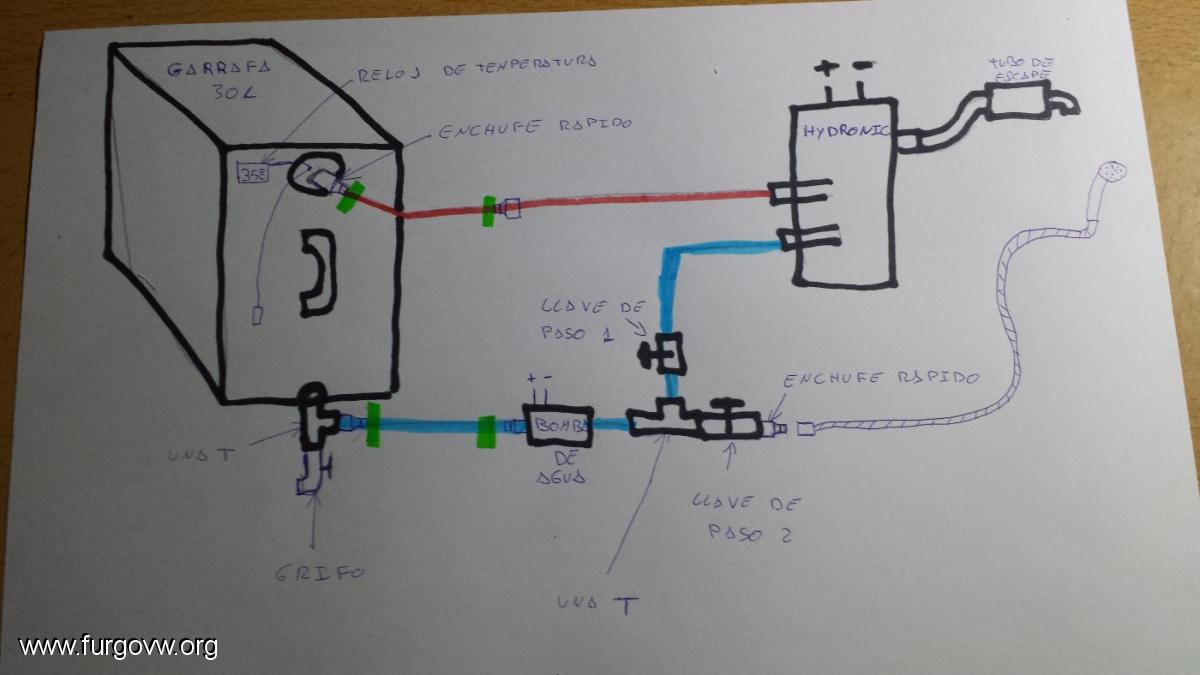 GARRAFA
30L
RELOJ DE TENPERATURA
TUBO DE
ESCAPE
+ -
HYDRONIC
ENCHUFE RAPIDO
35º
LLAVE DE
PASO 1
ENCHUFE RAPIDO
+ -
BOMBA
DE
AGUA
UNA T
LLAVE DE
PASO 2
GRIFO
UNA T
www.furgovw.org